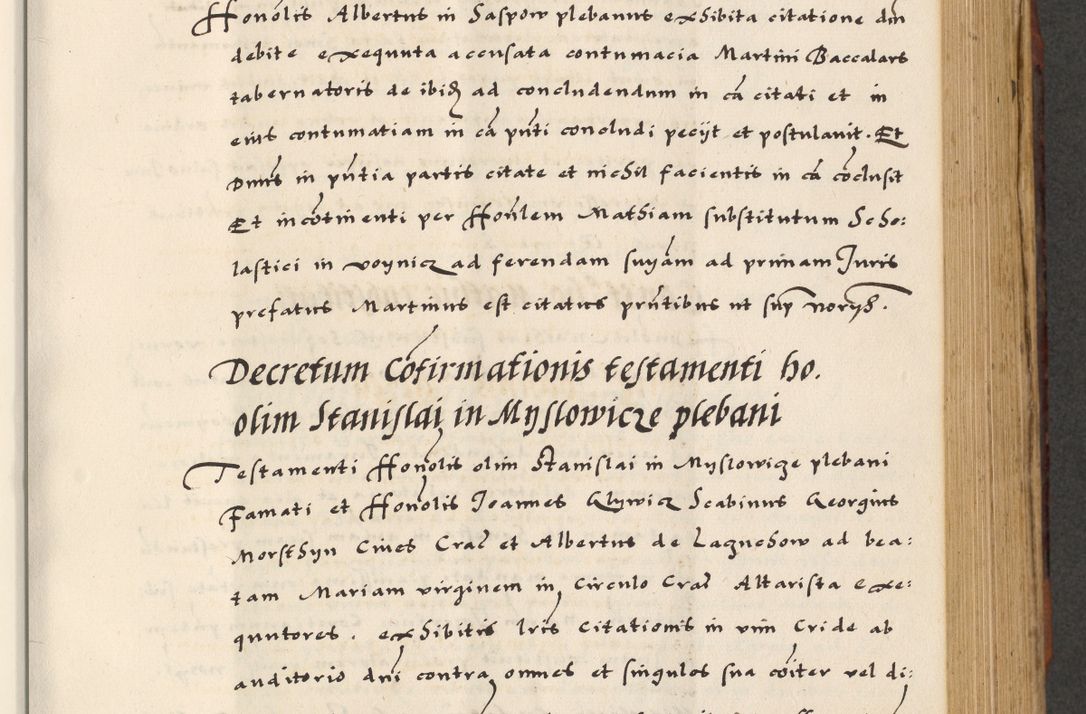 Honolis Albertus in Saspow plebanus exhibita citatione dni
debite exequuta accusata contumacia Martini Baccalars
tabernatoris de ibid ad concludendum in ca citati et in
eius contumatiam in ca pnti concludi peciit et postulavit. Et
Dnus in pntia partis citate et nichil facientis in ca coclusit
Et incotinenti per Honlem Mathiam substitutum Scho:
lastici in voynicz ad ferendam suyam ad primam Juris
prefatus Martinus est citatus pntibus ut sup
Decretum Cofirmationis testamenti ho.
olim Stanislai in Myslowicze plebani
Testamenti Honolis olim Stanislai in Myslowicze plebani
Famati et Honolis Joannes Glywicz Scabinus Georgius
Morsthyn Cives Crac et Albertus de Lagnehow ad bea:
tam Mariam virginem in Circulo Crac Altarista exe:
quutores. exhibitis lris Citationis in vim Cride ab
auditorio dni contra omnes et singulos sua coiter vel di: